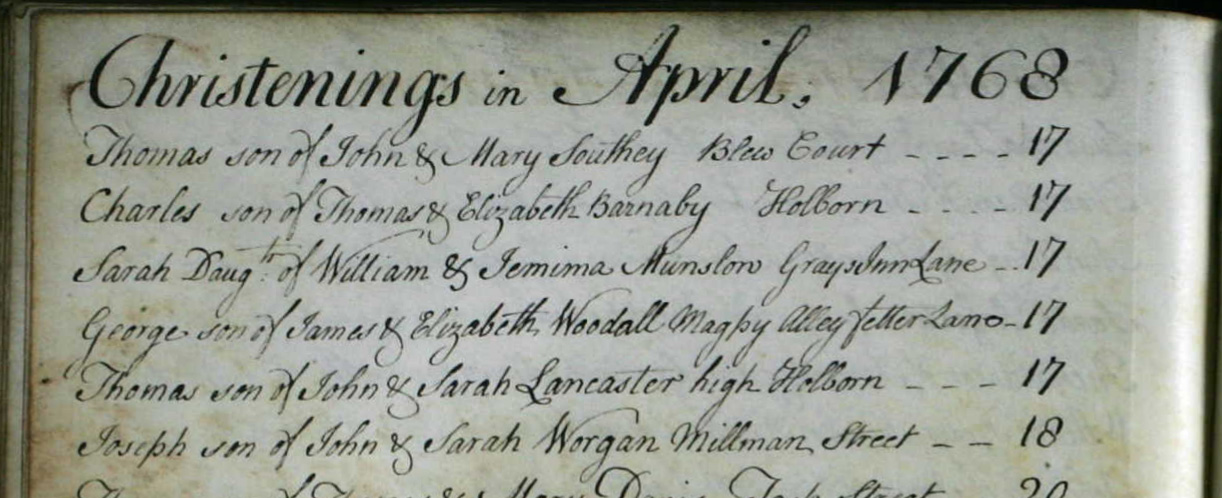 Christenings in April, 1768
Thomas son of John & Mary Southey Blew Court - - - - 17
Charles son of Thomas & Elizabeth Barnaby Holborn - - - - 17
Sarah Daugtr. of William & Jemima Munslow Grays Inn Lane - - 17
George son of James & Elizabeth Woodall Magpy Alley fetter Lane - 17
Thomas son of John & Sarah Lancaster high Holborn - - - 17
Joseph son of John & Sarah Worgan Millman Street - - 18
of Mary Davis Street 20